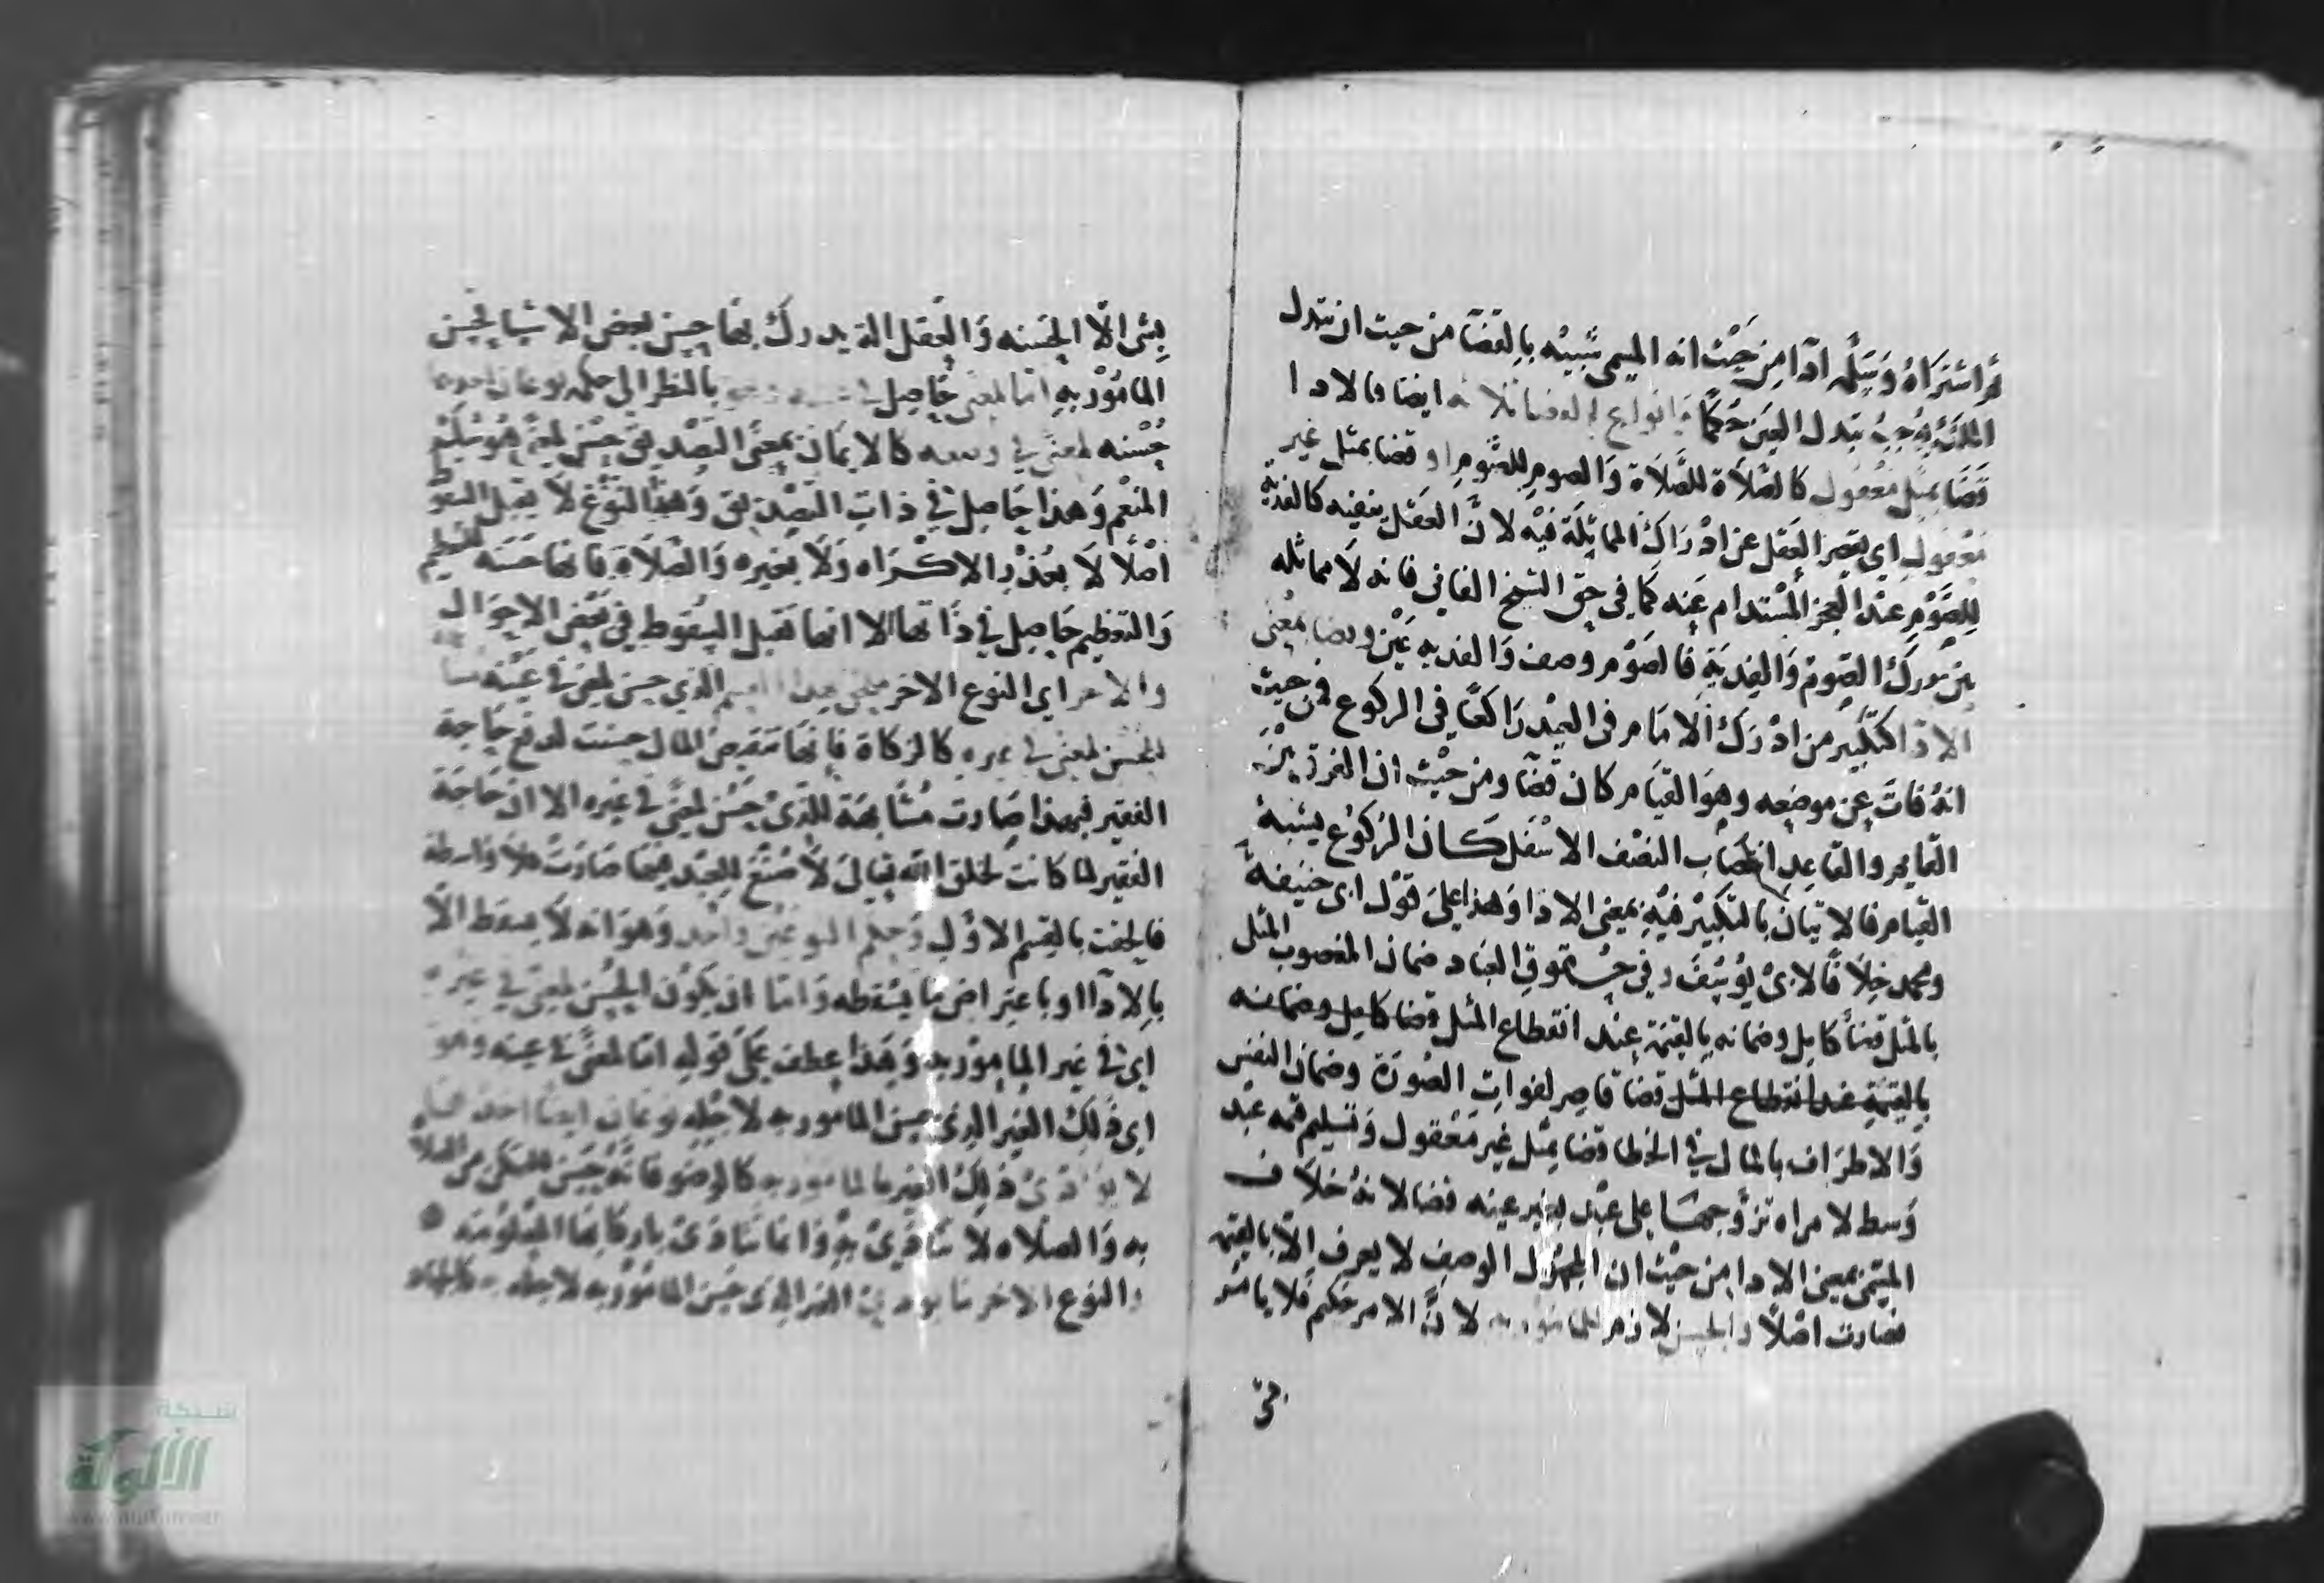 ثم اشتراه وتسلمه ادآ من حيث انه المسمى شبيه بالقضآ من حيث ان تبدل
الملك يوجب تبدل العين حكما وانواع القضا ثلاثه ايضا كالادا
قضا بمثل معقول كالصلاة للصلاة والصوم للصوم او قضا بمثل غير
معقول اي يقصر العقل عن ادراك المماثلة فيه لا ان العقل ينفيه كالفدية
للصوم عند العجز المستدام عنه كما في حق الشيخ الفاني فانه لا مماثله
بين مدرك الصوم والفدية فالصوم وصف والفديه عين وقضا بمعنى
الادا كتكبير من ادرك الامام في العيد راكعا في الركوع فمن حيث
انه فات عن موضعه وهو القيام كان قضآ ومن حيث ان الفرق بين
القايم والقاعد انتصاب النصف الاسفل كان الركوع يشبه
القيام فالاتيان بالتكبير فيه بمعنى الادا وهذا على قول ابى حنيفة
ومحمد خلافا لابى يوسف وفي حقوق العباد ضمان المغصوب المثل
بالمثل قضآ كامل وضمانه بالقيمة عند انقطاع المثل قضا كامل وضمانه
بالقيمة عند انقطاع المثل قضا قاصر لفوات الصورة وضمان النفس
والاطراف بالمال في الخطا قضا بمثل غير معقول وتسليم قيمه عبد
وسط لامراه تزوجها على عبد بغير عينه قضا لانه خلاف
المسمى بمعنى الادا من حيث ان المجهول الوصف لا يعرف الا بالقيمه
فصارت اصلا والحسن لازم للمامور به لان الامر حكيم فلا يامر
بشى
بشى الا لحسنه والعقل الة يدرك بها حسن بعض الاشيا فحسن
المامور به اما لمعنى حاصل في بالنظر الى حكمه نوعان احدهما
حسنه لمعنى في وصفه كالايمان بمعنى التصديق حسن لمعنى هو شكر
المنعم وهذا حاصل في ذات التصديق وهذا النوع لا يقبل السقوط
اصلا لا بعذر الاكراه ولا بغيره والصلاة فانها حسنه للتعظيم
والتعظيم حاصل في ذاتها الا انها تقبل السقوط في بعض الاحوال
والاخر اي النوع الاخر الذي حسن لمعنى في عينه
لحسن لمعنى في غيره كالزكاة فانها تنقيص المال حسنت لدفع حاجة
الفقير فبهذا صارت مشابهة للذي حسن لمعنى في غيره الا ان حاجة
الفقير لما كانت بخلق الله تعالى لا صنع للعبد فيها صارت كلا واسطة
فالحقت بالقسم الاول وحكم النوعين واحد وهو انه لا يسقط الا
بالادآ او باعتراض ما يسقطه واما ان يكون الحسن لمعنى في غيره
اي في غير المامور به وهذا عطف على قوله اما لمعنى في عينه وهو
اي ذلك الغير الذي حسن المامور به لاجله نوعان ايضا احدهما
لا يتادى ذلك الغير بالمامور به كالوضو فانه حسن للتمكن من الصلاة
به والصلاه لا تتادى به وانما تتادى باركانها المعلومة
والنوع الاخر ما الغير الذي حسن المامور به لاجله كالجهاد
شبكة
الألوكة